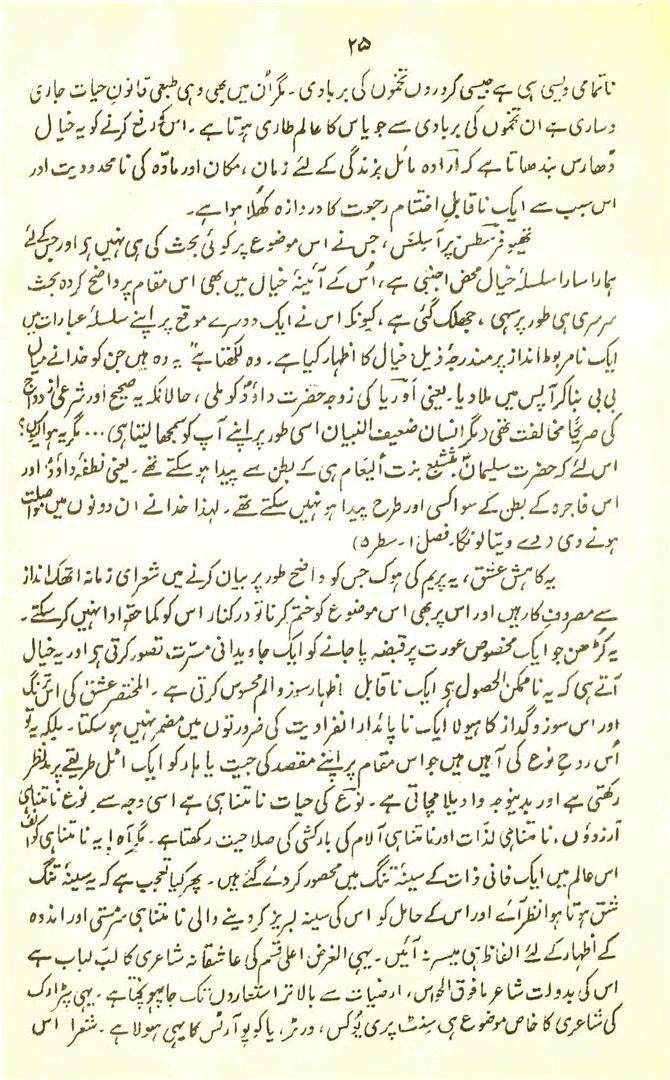 ۲۵
ناتمامی ویسی ہی ہے جیسی کروروں تخموں کی بربادی ۔ مگر اُن میں بھی وہی طبعی قانونِ حیات جاری
و ساری ہے ان تخموں کی بربادی سے جو یاس کا عالم طاری ہوتا ہے ۔ اس کو رفع کرنے کو یہ خیال
ڈھارس بندھاتا ہے کہ ارادہ مائل بزندگی کے لئے زمان ، مکان اور مادّہ کی نامحدودیت اور
اس سبب سے ایک ناقابلِ اختتام رجوت کا دروازہ کھُلا ہوا ہے ۔
تھیوفرسطس پراسلسس ، جس نے اس موضوع پر کوئی بحث کی ہی نہیں ہو اور جس کے لئے
ہمارا سارا سلسلۂ خیال محض اجنبی ہے ، اُس کے آئینۂ خیال میں بھی اس مقام پر واضح کردہ بحث
سرسری ہی طور پر سہی ، جھلک گئی ہے ، کیونکہ اس نے ایک دوسرے موقع پر اپنے سلسلۂ عبارات میں
ایک نامربوط انداز پر مندرجۂ ذیل خیال کا اظہار کیا ہے ۔ وہ لکھتا ہے " یہ وہ ہیں جن کو خدا نے میاں
بی بی بنا کر آپس میں ملا دیا ۔ یعنی اَوریا کی زوجہ حضرت داؤدؑ کو ملی ، حالانکہ یہ صحیح اور شرعی ازدواج
کی صریحًا مخالفت تھی ( مگر انسان ضعیف البنیان اسی طور پر اپنے آپ کو سمجھا لیتا ہی ) ... مگر یہ ہوا کیوں ؟
اس لئے کہ حضرت سلیمانؑ بتشبع بنت الیعام ہی کے بطن سے پیدا ہو سکتے تھے ۔ یعنی نطفۂ داؤدؑ اور
اس فاجرہ کے بطن کے سوا کسی اور طرح پیدا ہو نہیں سکتے تھے ۔ لہذا خدا نے ان دونوں میں مواصلت
ہونے دی ( دے ویتا لونگا ۔ فصل ۱ ۔ سطر ۵ )
یہ کاہش عشق ، یہ پریم کی ہوک جس کو واضح طور پر بیان کرنے میں شعرای زمانہ اتھک انداز
سے مصروفِ کار ہیں اور اس پر بھی اس موضوع کو ختم کرنا تو درکنار اس کو کما حقہٗ ادا نہیں کر سکتے ۔
یہ کڑھن جو ایک مخصوص عورت پر قبضہ پا جانے کو ایک جاویدانی مسرّت تصور کرتی ہو اور یہ خیال
آتے ہی کہ یہ ناممکن الحصول ہو ایک ناقابل اظہار سوز و الم محسوس کرتی ہے ۔ المختصر عشق کی اس ترنگ
اور اس سوز و گداز کا ہولا ایک ناپائدار انفرادیت کی ضرورتوں میں مضمر نہیں ہو سکتا ۔ بلکہ یہ تو
اُس روحِ نوع کی آہیں ہیں جو اس مقام پر اپنے مقصد کی جیت یا ہار کو ایک اٹل طریقے پر مدنظر
رکھتی ہے اور بدینوجہ واویلا مچاتی ہے ۔ نوع کی حیات نامتناہی ہے اسی وجہ سے نوع نامتناہی
آرزوؤں ، نامتناہی لذّات اور نامتناہی آلام کی بارکشی کی صلاحیت رکھتا ہے ۔ مگر آہ ! یہ نامتناہی کوائف
اس عالم میں ایک فانی ذات کے سینۂ تنگ میں محصور کر دئے گئے ہیں ۔ پھر کیا تعجب ہے کہ یہ سینۂ تنگ
شق ہوتا ہوا نظر آے اور اس کے حامل کو اس کی سینہ لبریز کر دینے والی نامتناہی سرمستی اور اندوہ
کے اظہار کے لئے الفاظ ہی میسر نہ آئیں ۔ یہی الغرض اعلی قسم کی عاشقانہ شاعری کا لبّ لباب ہے
اس کی بدولت شاعر مافوق الحواس ، ارضیات سے بالاتر استعاروں تک جا پہونچتا ہے ۔ یہی پٹرارک
کی شاعری کا خاص موضوع ہی سنٹ پری یُوکس ، ورٹر ، یاکوپو آرٹس کا یہی ہولا ہے ۔ شعرا اس